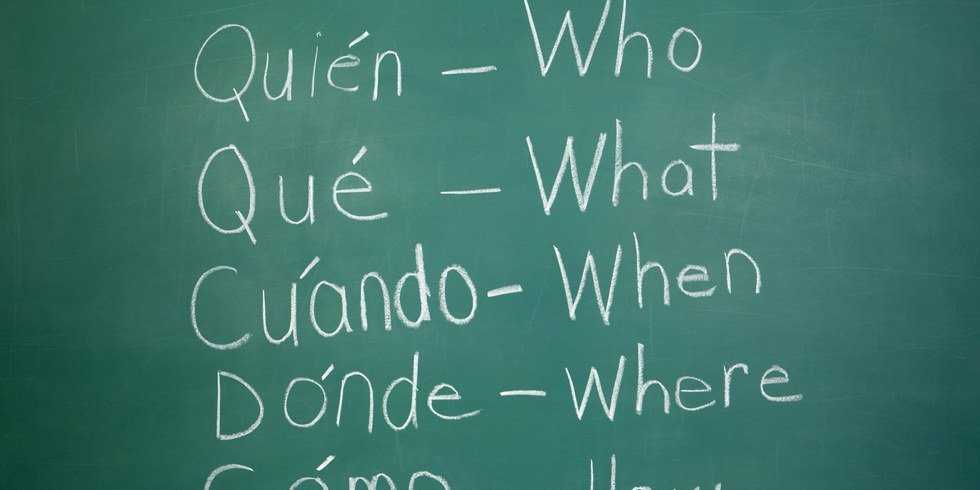 Quién – Who
Qué – What
Cúando – When
Dónde – Where
Cómo How